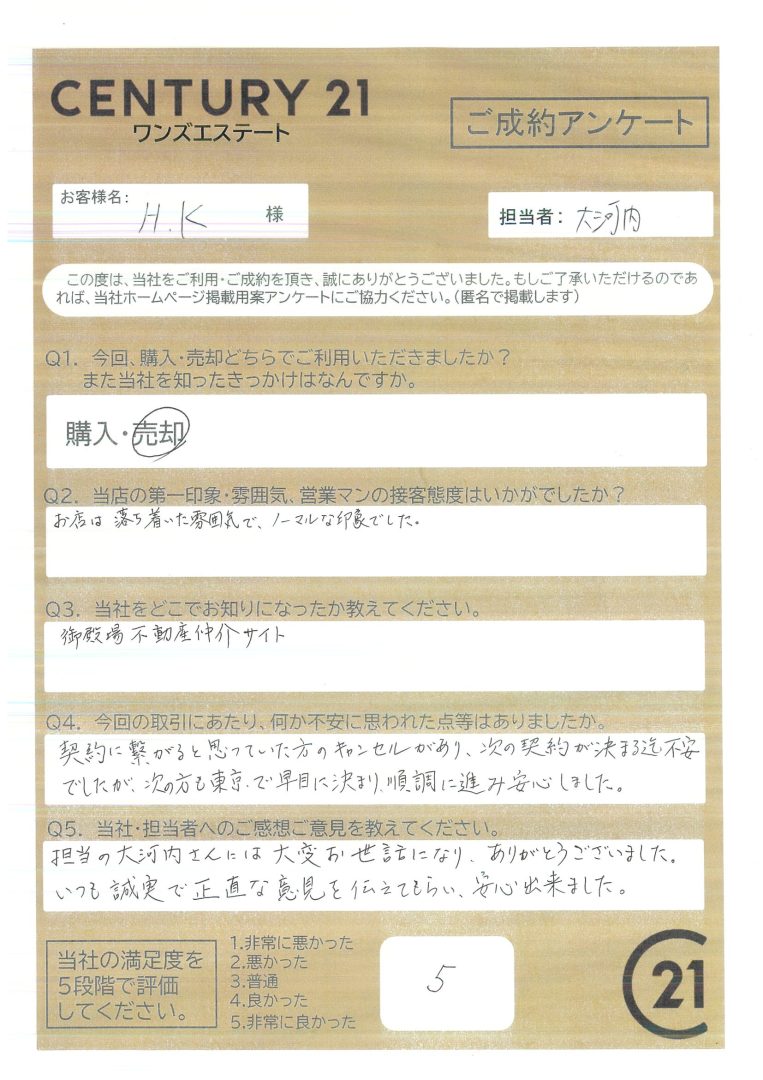 CENTURY 21
ワンズエステート
ご成約アンケート
お客様名:
H.K 様
担当者: 大河内
この度は、当社をご利用・ご成約を頂き、誠にありがとうございました。もしご了承いただけるのであ
れば、当社ホームページ掲載用案アンケートにご協力ください。(匿名で掲載します)
Q1. 今回、購入・売却どちらでご利用いただきましたか?
また当社を知ったきっかけはなんですか。
購入・売却
Q2. 当店の第一印象・雰囲気、営業マンの接客態度はいかがでしたか?
お店は落ち着いた雰囲気で、ノーマルな印象でした。
Q3. 当社をどこでお知りになったか教えてください。
御殿場不動産仲介サイト
Q4. 今回の取引にあたり、何か不安に思われた点等はありましたか。
契約に繋がると思っていた方のキャンセルがあり、次の契約が決まる迄不安
でしたが、次の方も東京で早目に決まり、順調に進み安心しました。
Q5. 当社・担当者へのご感想ご意見を教えてください。
担当の大河内さんには大変お世話になり、ありがとうございました。
いつも誠実で正直な意見を伝えてもらい、安心出来ました。
当社の満足度を
5段階で評価
してください。
1.非常に悪かった
2.悪かった
3.普通
4.良かった
5.非常に良かった
5
21